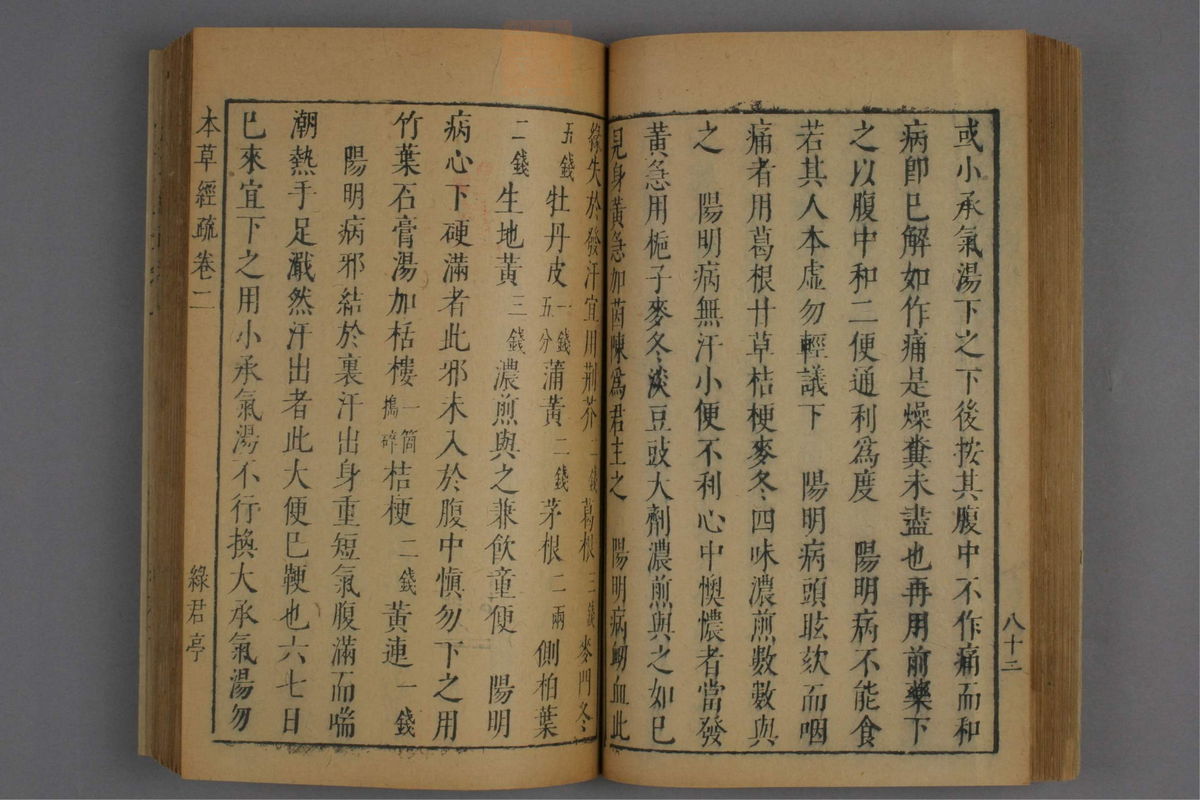 或小承氣湯下之下後按其腹中不作痛而和
病卽已解如作痛是燥糞未盡也再用前藥下
之以腹中和二便通利爲度　陽明病不能食
若其人本虛勿輕議下　陽明病頭眩欬而咽
痛者用葛根甘草桔梗麥冬四味濃煎數數與
之　陽明病無汗小便不利心中懊憹者當發
黃急用梔子麥冬淡豆豉大劑濃煎與之如已
見身黃急加茵蔯爲君主之　陽明病衂血此
緣失於發汗宜用荆芥二錢葛根三錢麥門冬
五錢牡丹皮一錢五分蒲黃二錢茅根二兩側柏葉
二錢生地黃三錢濃煎與之兼飲童便　陽明
病心下硬滿者此邪未入於腹中愼勿下之用
竹葉石膏湯加栝樓一箇搗碎桔梗二錢黃連一錢
陽明病邪結於裏汗出身重短氣腹滿而喘
潮熱手足濈然汗出者此大便已鞕也六七日
已來宜下之用小承氣湯不行換大承氣湯勿
本草經疏卷二
綠君亭
八十二